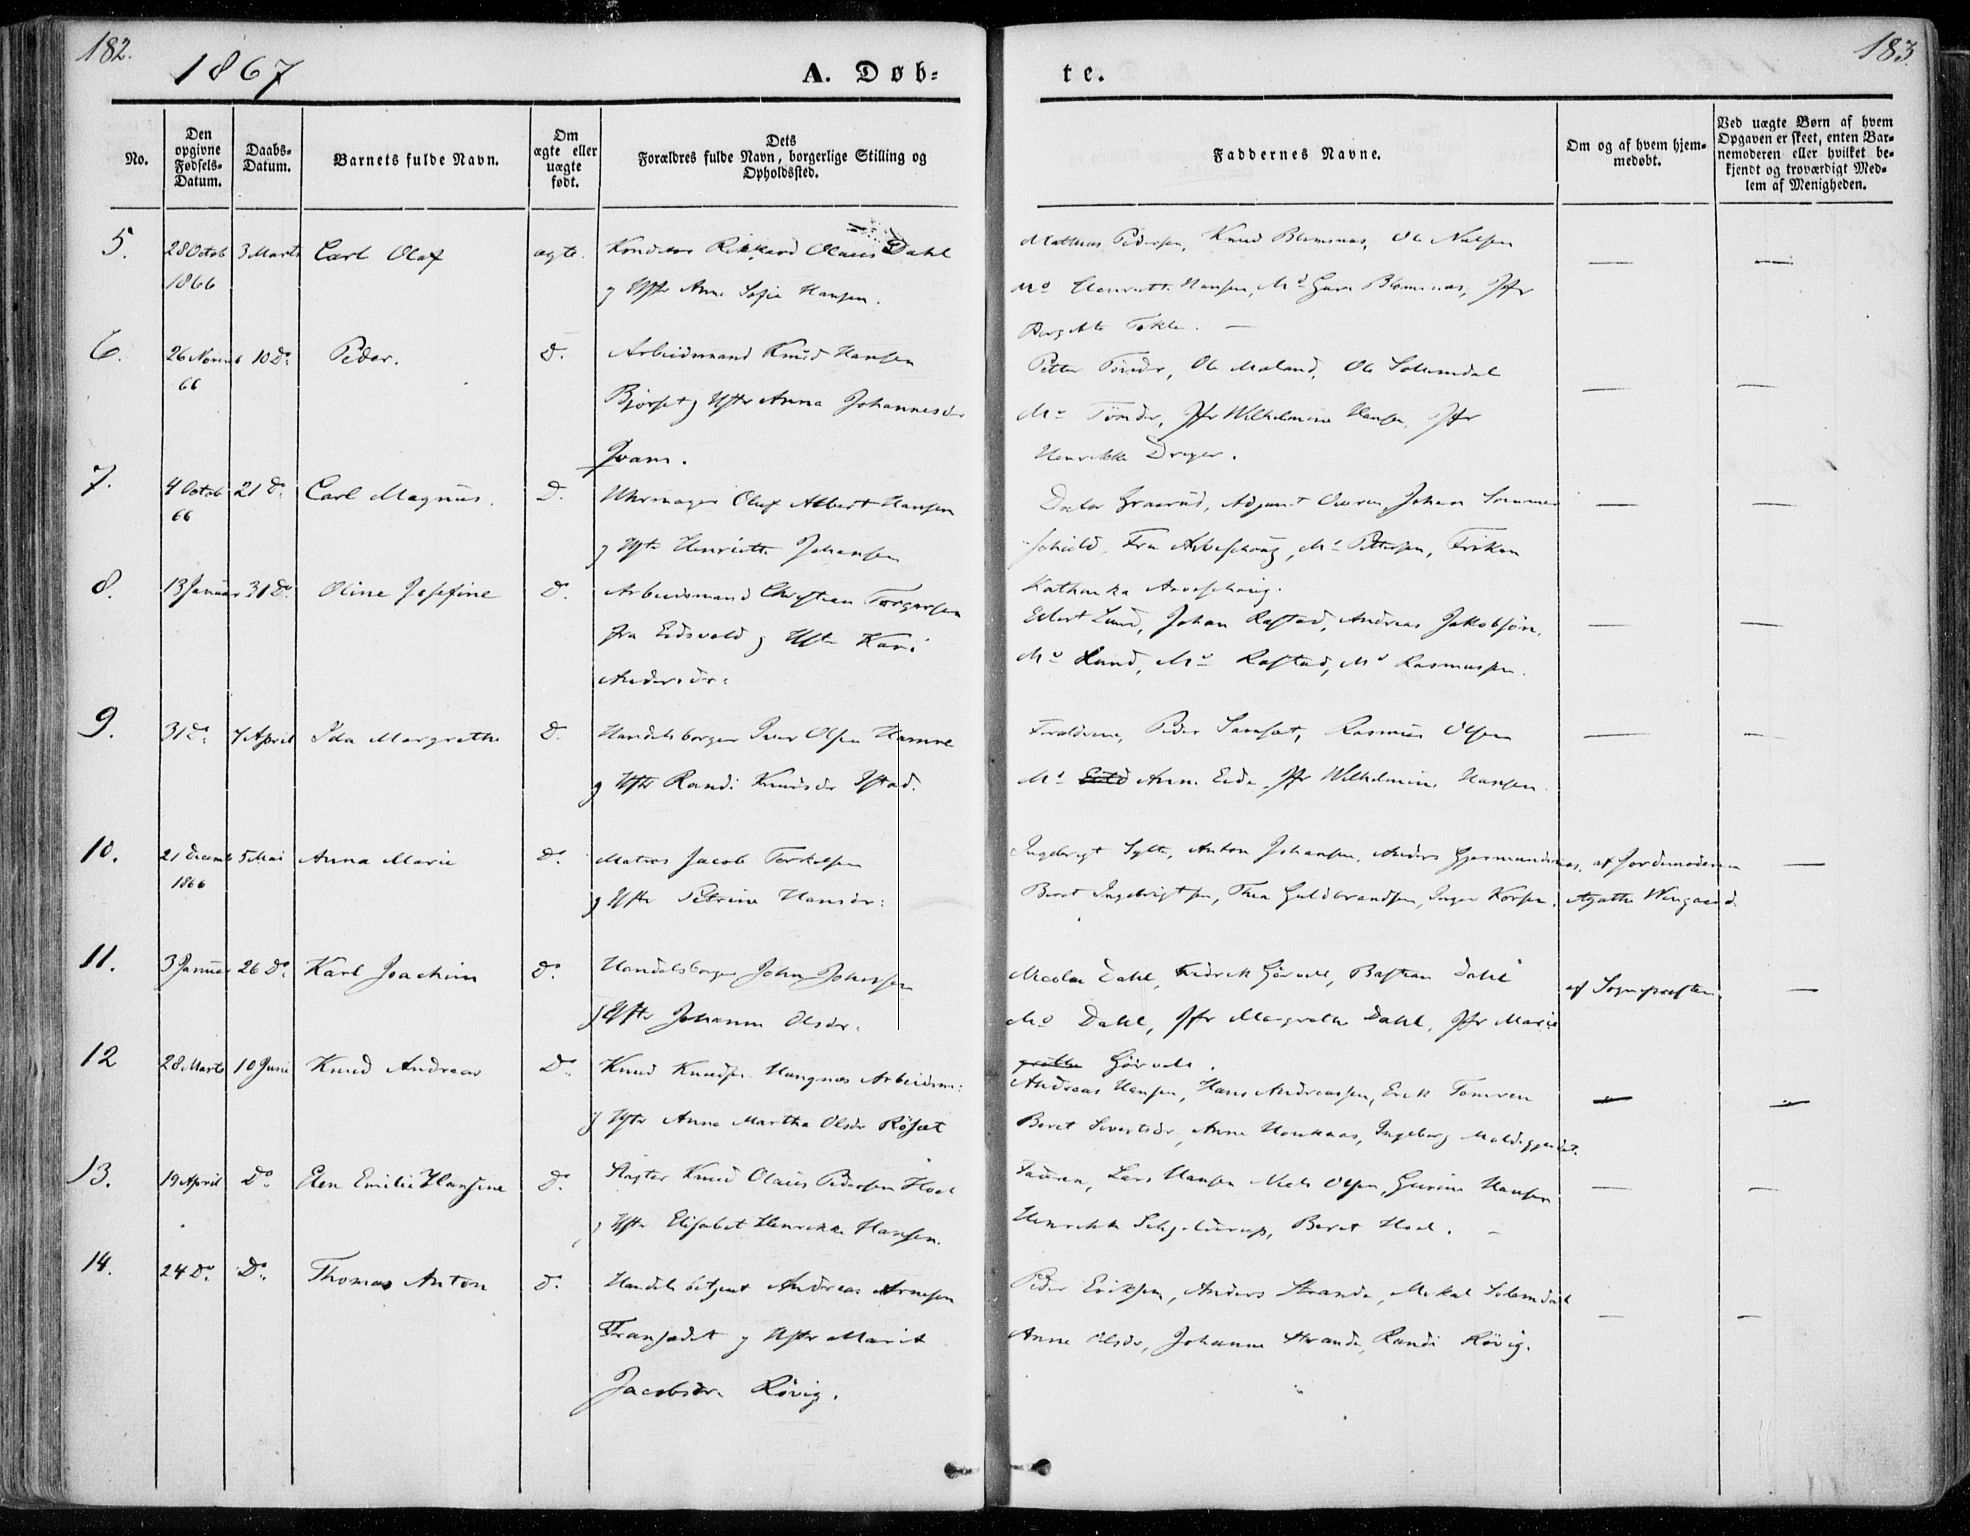 182.
1867
A. Døb-
te.
183.
No.
Den opgivne Fødsels-Datum.
Daabs-Datum.
Barnets fulde Navn.
Om ægte eller uægte født.
Dets Forældres fulde Navn, borgerlige Stilling og Opholdssted.
Faddernes Navne.
Om og af hvem hjem-medøbt.
Ved uægte Børn af hvem Opgaven er skeet, enten Bar-nemoderen eller hvilket be-kjendt og troværdigt Med-lem af Menigheden.
5. 28 Octob 3 Marts Carl Olaf ægte. Rikkard Olaus Dahl Pedersen, Knud Blomsnæs, Ole — —
1866 g Hstr Anne Sofie Hansen. Md Hansen, Md Blomsnæs, Jfr
6. 26 Novemb 10 Do Peder. D. Arbeidsmand Knud Hansen Petter Tønder, Ole Moland, Ole Solemdal — —
66 Bjørset g Hstr Anna Johannesdr Md Tønder, Jfr Wilhelmine Hansen, Jfr
Qvam. Henrikke Dreyer.
7. 4 Octob 21 Do Carl Magnus. D. Uhrmager Oluf Albert Hansen Doctor Graarud, Adjunct Johan Sommer — —
66 g Hstr Henriette Johansen schield, Fru Md Pettersen, Frøken
8. 13 Januar 31 Do Oline Josefine D. Arbeidsmand Christian Torgersen Kathinka
fra Eidsvold g Hstr Kari Eilert Lund, Johan Rastad, Andreas Jakobsøn, — —
Andersdr: Md Lund, Md Rastad, Md Rasmussen.
9. 31 Do 7 April Ida Margrethe D. Handelsborger Iver Olsen Hamre Forældrene, Peder Rasmus Olsen — —
g Hstr Randi Knudsdr Istad. Md Anne Eide, Jfr Wilhelmine Hansen.
10. 21 Decemb 5 Mai Anna Marie D. Matros Jacob Torkelsen Ingebrigt Sylte, Anton Johansen, Anders Gjermundsnæs, af Jordemoderen —
1866 g Hstr Petrine Hansdr: Beret Ingebrigtsen, Thea Guldbrandsen, Inger Korsen. Agathe Wengaard.
11. 3 Januar 26 Do Karl Joachim D. Handelsborger John Johnsen Nicolai Dahl, Fredrik Gørvel, Bastian Dahl af Sognepresten. —
g Hstr Johanne Olsdr: Md Dahl, Jfr Margrethe Dahl, Jfr Marie
Gørvel.
12 28 Marts 10 Juni Knud Andreas D. Knud Knudsen Hungnes Arbeidsm: Andreas Hansen, Hans Andreassen, Erik Tomren — —
g Hstr Anne Martha Olsdr Røsæt Beret Sivertsdr, Anne Ingeborg
13. 19 April Do Elen Emilie Hansine D. Slagter Knud Olaus Pedersen Hoel Faderen, Lars Hansen Niels Olsen, Gurine Hansen — —
g Hstr Elisabet Henrikke Hansen. Henrikke Schjelderup, Beret Hoel. —
14. 24 Do Do Thomas Anton D. Handelsbetjent Andreas Arnesen Peder Eriksen, Anders Strande, Mikal Solemdal — —
g Hstr Marit Anne Olsdr, Johanne Strande, Randi Røvig.
Jacobsdr. Røvig.